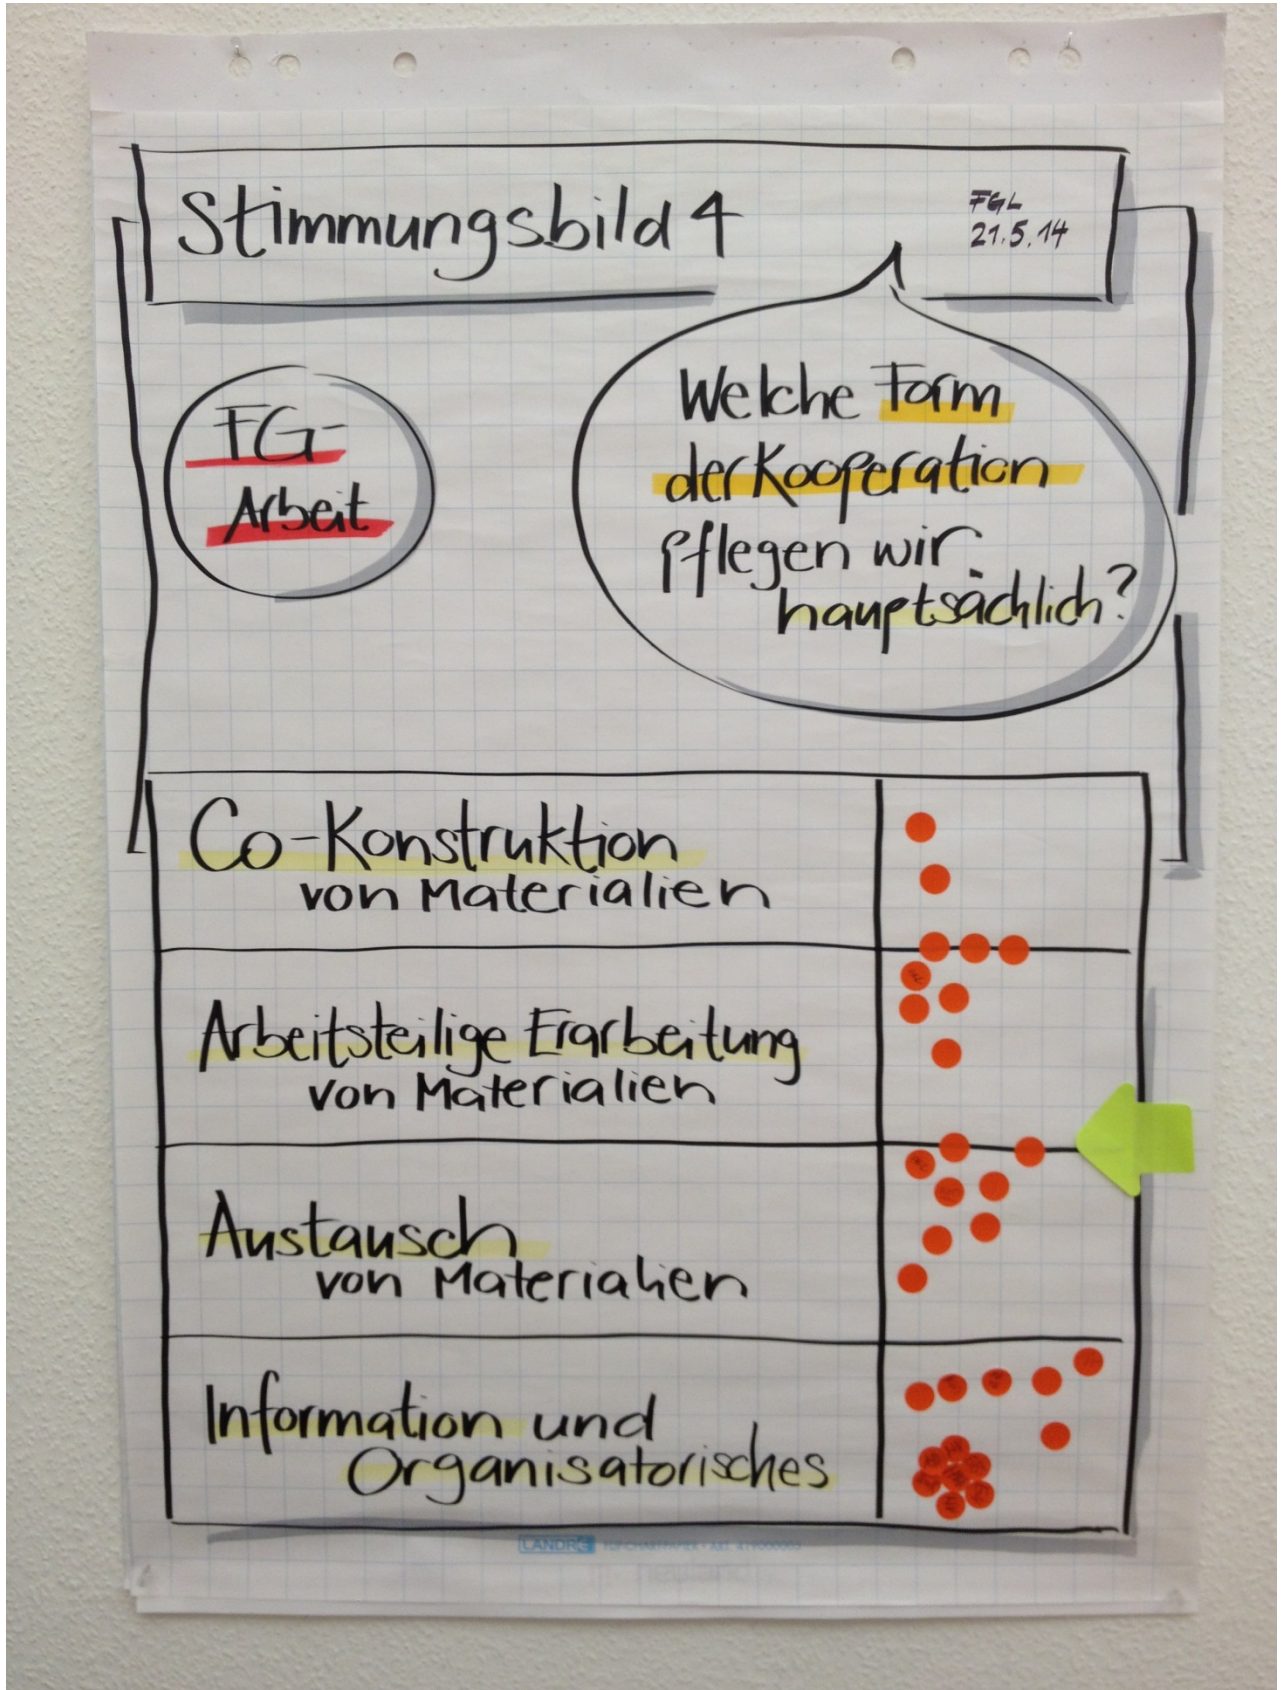 Stimmungsbild 4
FGL
21.5.14
FG-
Arbeit
Welche Form
der Kooperation
pflegen wir
hauptsächlich?
Co-Konstruktion
von Materialien
Arbeitsteilige Erarbeitung
von Materialien
Austausch
von Materialien
Information und
Organisatorisches
LANDRÉ